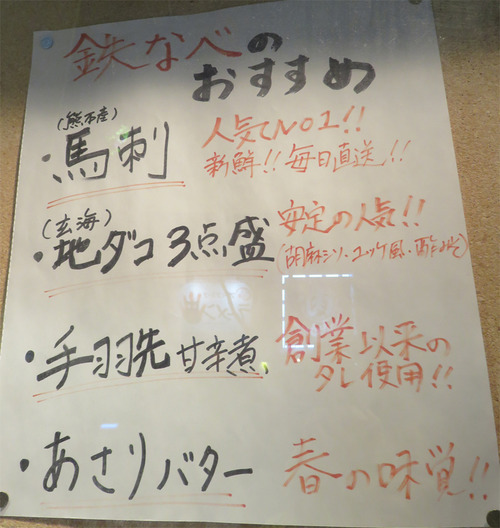 鉄なべの
おすすめ
(熊本産)
・馬刺
人気No1!!
新鮮!! 毎日直送!!
(玄海)
・地ダコ3点盛
安定の人気!!
(胡麻シソ・ユッケ風・酢みそ)
・手羽先 甘辛煮
創業以来の
タレ使用!!
・あさりバター
春の味覚!!